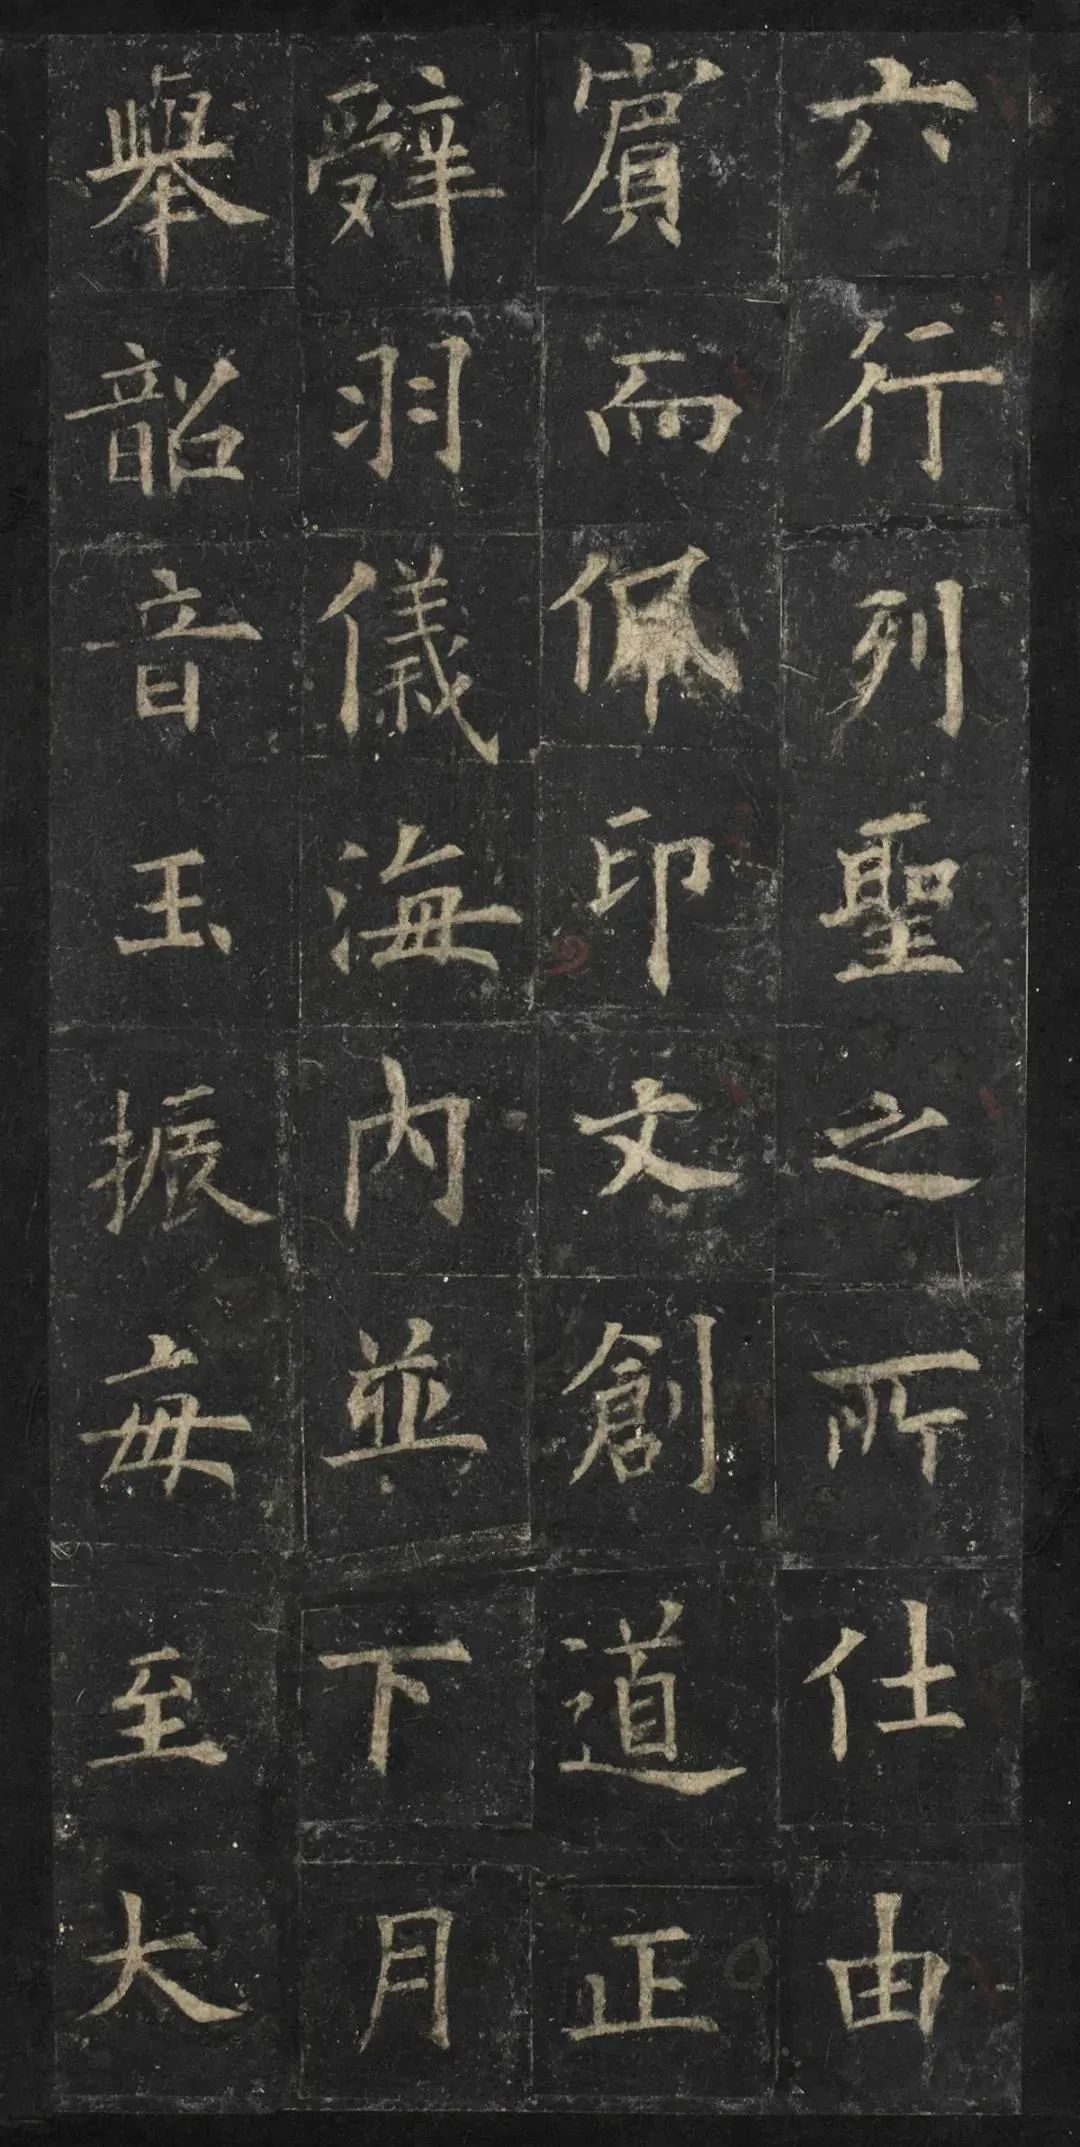 六行列聖之所仕由
賔而佩印文創道正
辤羽儀海内並下月
舉韶音玉振每至大